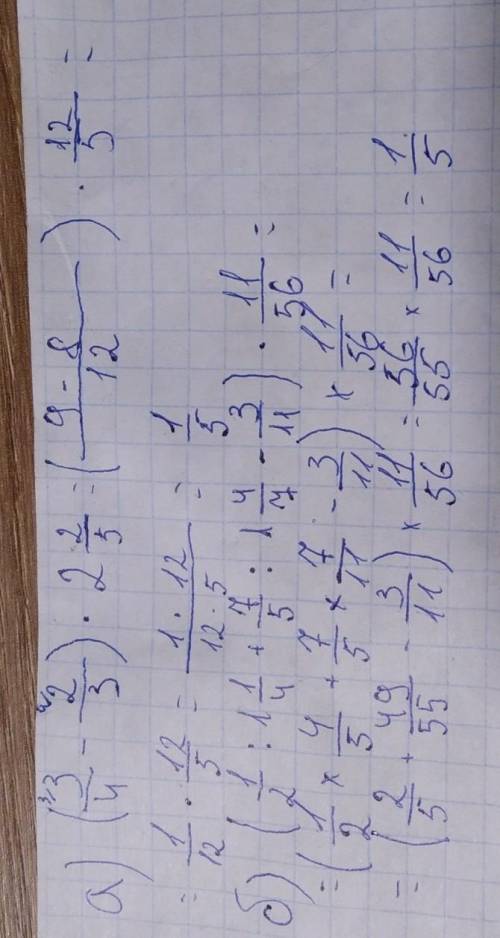 а) (³⁾3/4 - ⁴⁾2/3) · 2 2/5 = (9 - 8/12) · 12/5 =
= 1/12 · 12/5 = 1 · 12/12 · 5 = 1/5
б) (1/2 : 1 1/4 + 7/5 : 1 4/7 - 3/11) · 11/56 =
= (1/2 × 4/5 + 7/5 × 7/11 - 3/11) × 11/56 =
= (2/5 + 49/55 - 3/11) × 11/56 = 56/55 × 11/56 = 1/5